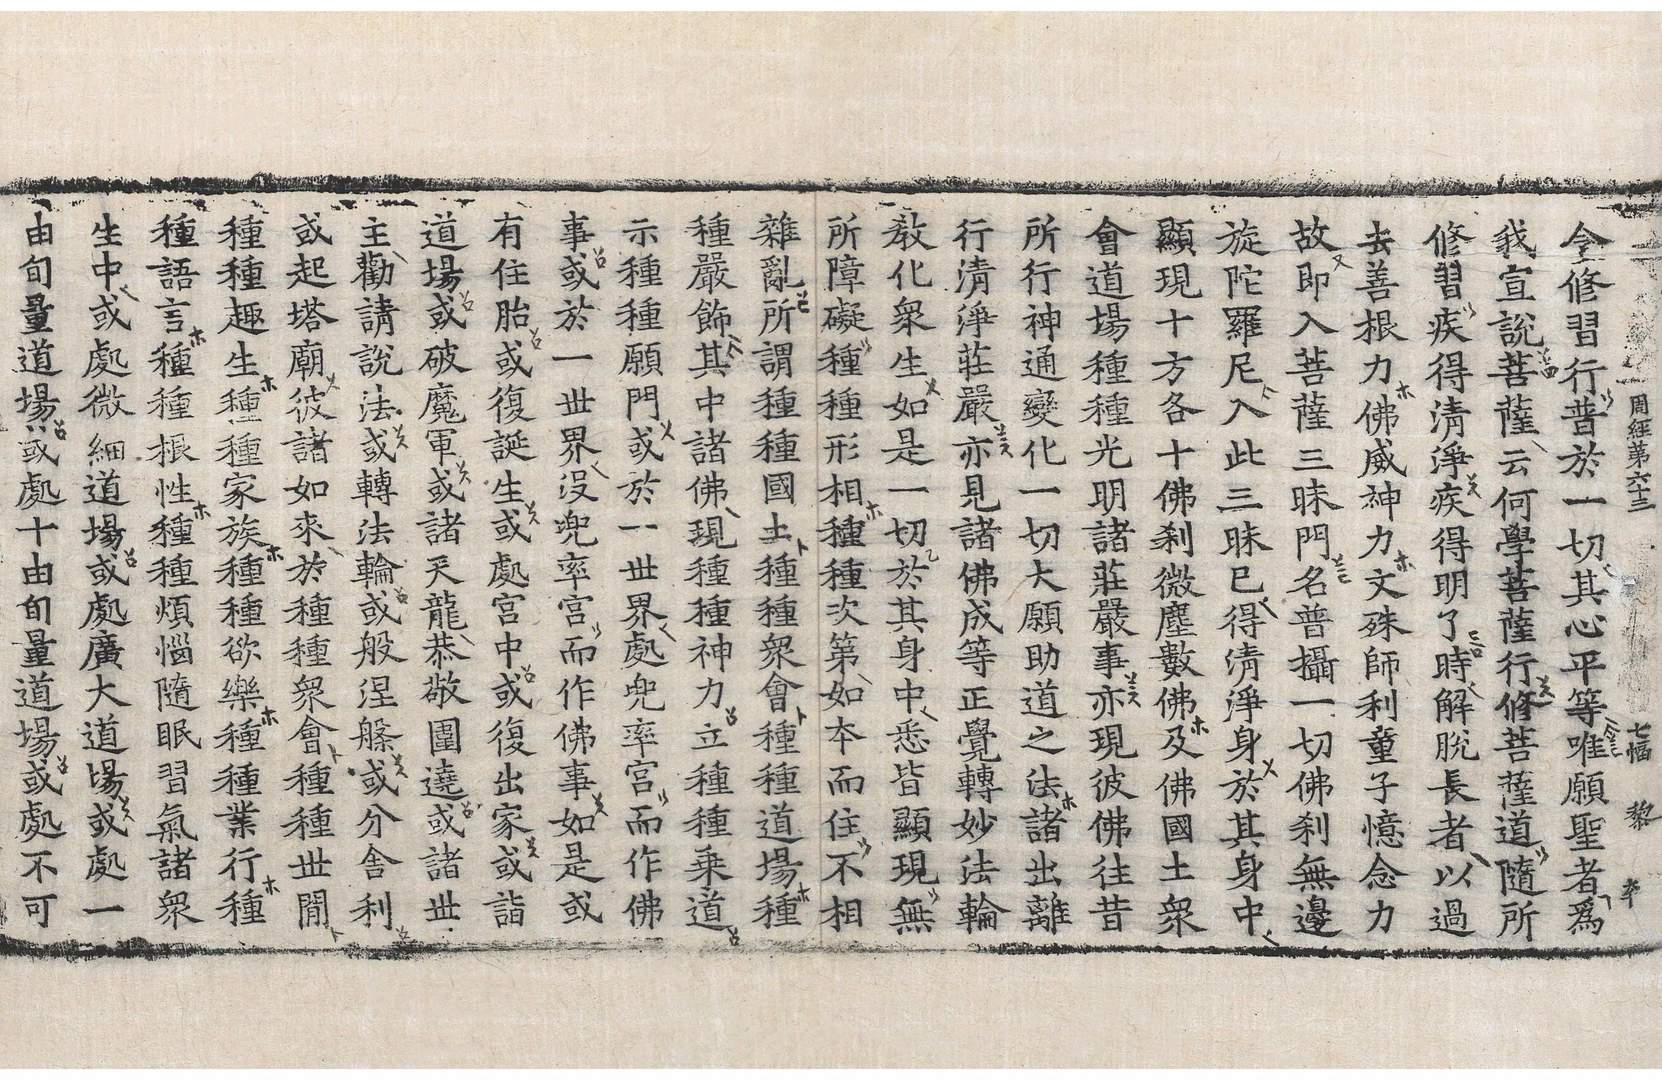 周經第六十三　七幅　黎
令修習行普於一切其心平等唯願聖者爲
我宣說菩薩云何學菩薩行修菩薩道隨所
修習疾得清淨疾得明了時解脫長者以過
去善根力佛威神力文殊師利童子憶念力
故即入菩薩三昧門名普攝一切佛刹無邊
旋陀羅尼入此三昧已得清淨身於其身中
顯現十方各十佛刹微塵數佛及佛國土衆
會道場種種光明諸莊嚴事亦現彼佛往昔
所行神通變化一切大願助道之法諸出離
行清淨莊嚴亦見諸佛成等正覺轉妙法輪
教化衆生如是一切於其身中悉皆顯現無
所障礙種種形相種種次第如本而住不相
雜亂所謂種種國土種種衆會種種道場種
種嚴飾其中諸佛現種種神力立種種乗道
示種種願門或於一世界處兜率宮而作佛
事或於一世界没兜率宮而作佛事如是或
有住胎或復誕生或處宮中或復出家或詣
道場或破魔軍或諸天龍恭敬圍遶或諸世
主勸請說法或轉法輪或般涅槃或分舍利
或起塔廟彼諸如來於種種衆會種種世間
種種趣生種種家族種種欲樂種種業行種
種語言種種根性種種煩惱隨眠習氣諸衆
生中或處微細道場或處廣大道場或處一
由旬量道場或處十由旬量道場或處不可